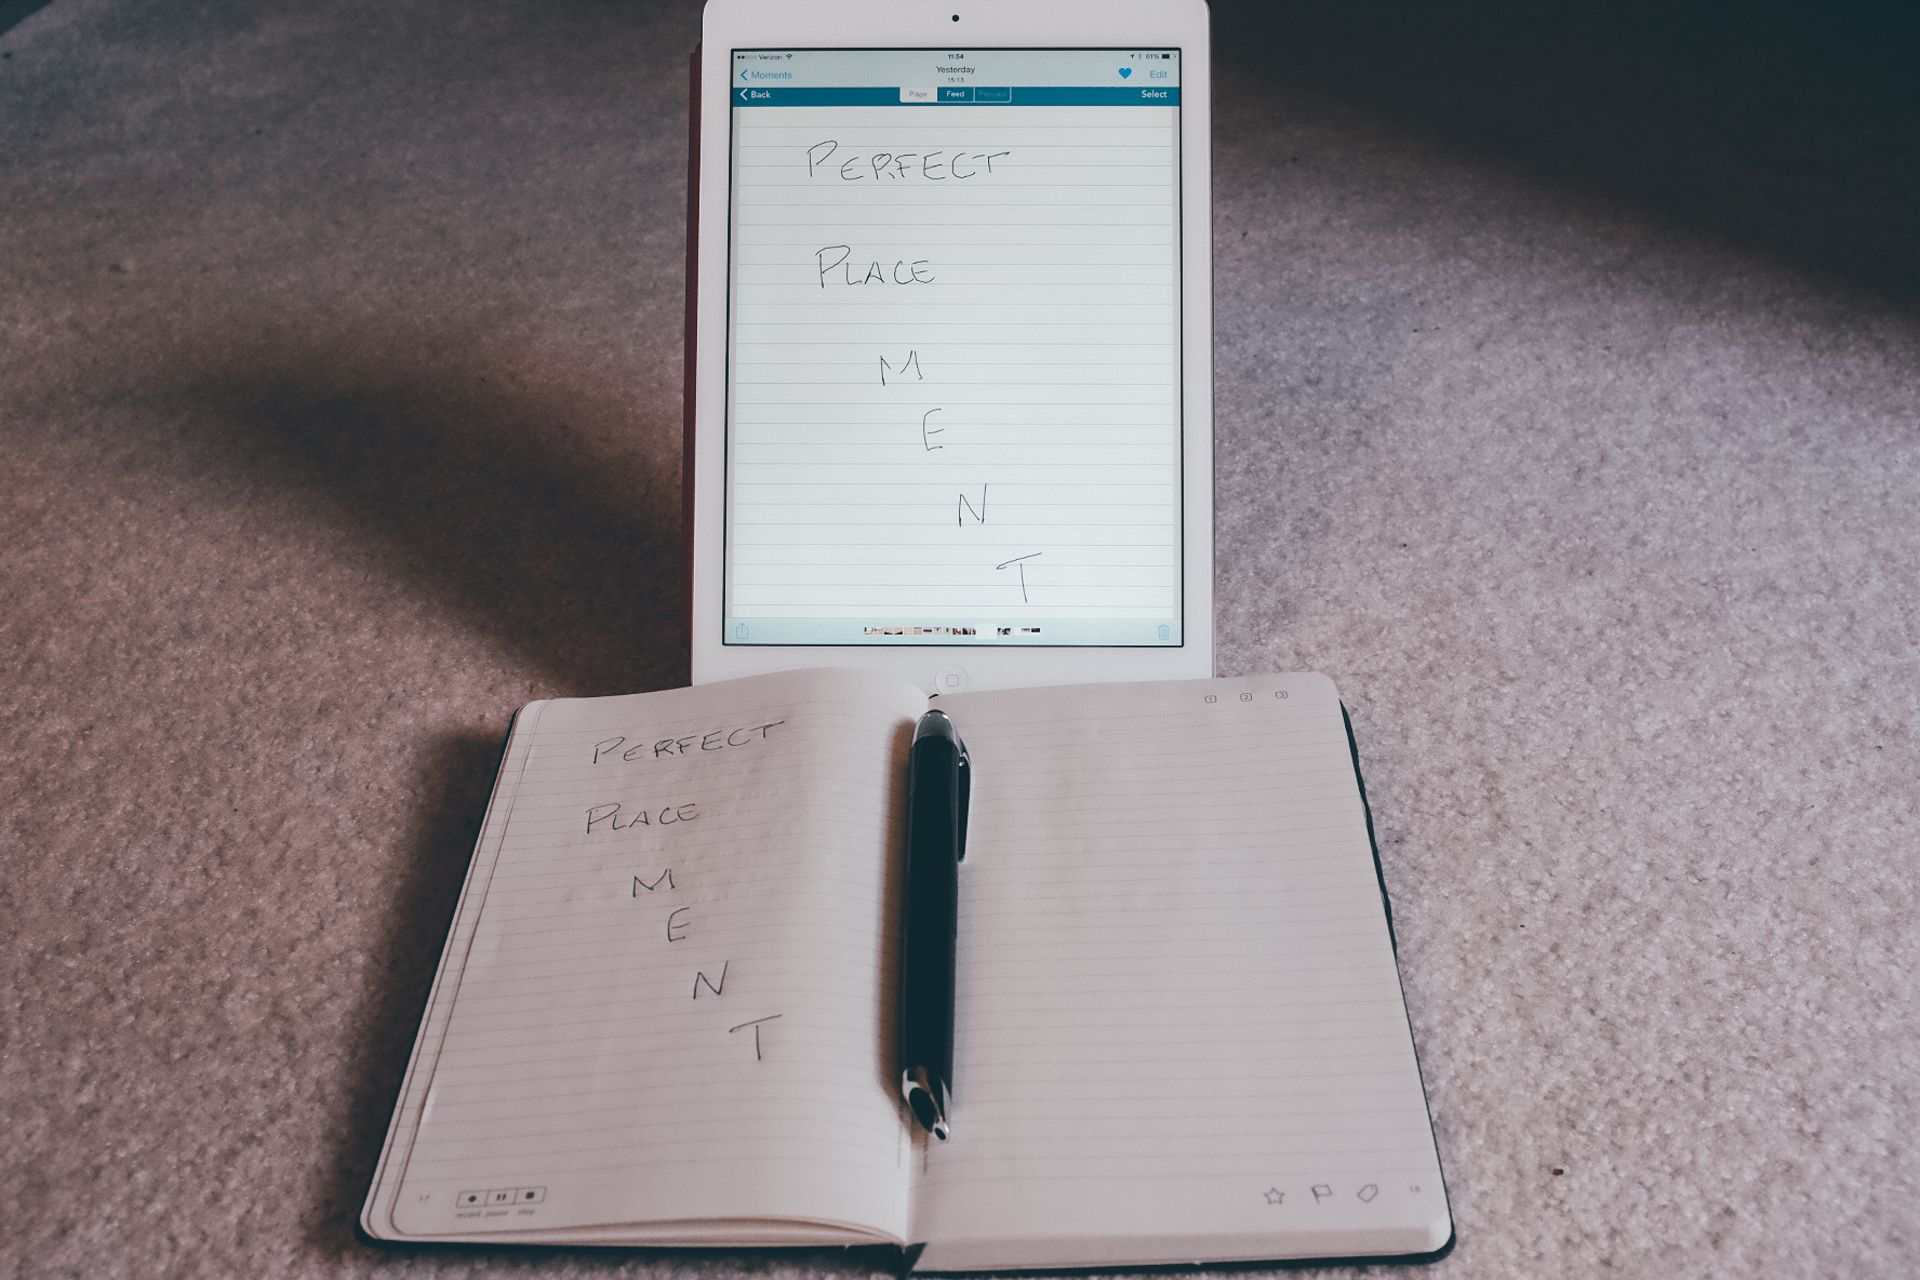 Verizon 11:54 61%
Moments Yesterday Edit
15:13
Back Page Feed Pencast Select
PERFECT
PLACE
M
E
N
T
1 2 3
PERFECT
PLACE
M
E
N
T
17 18
record pause stop